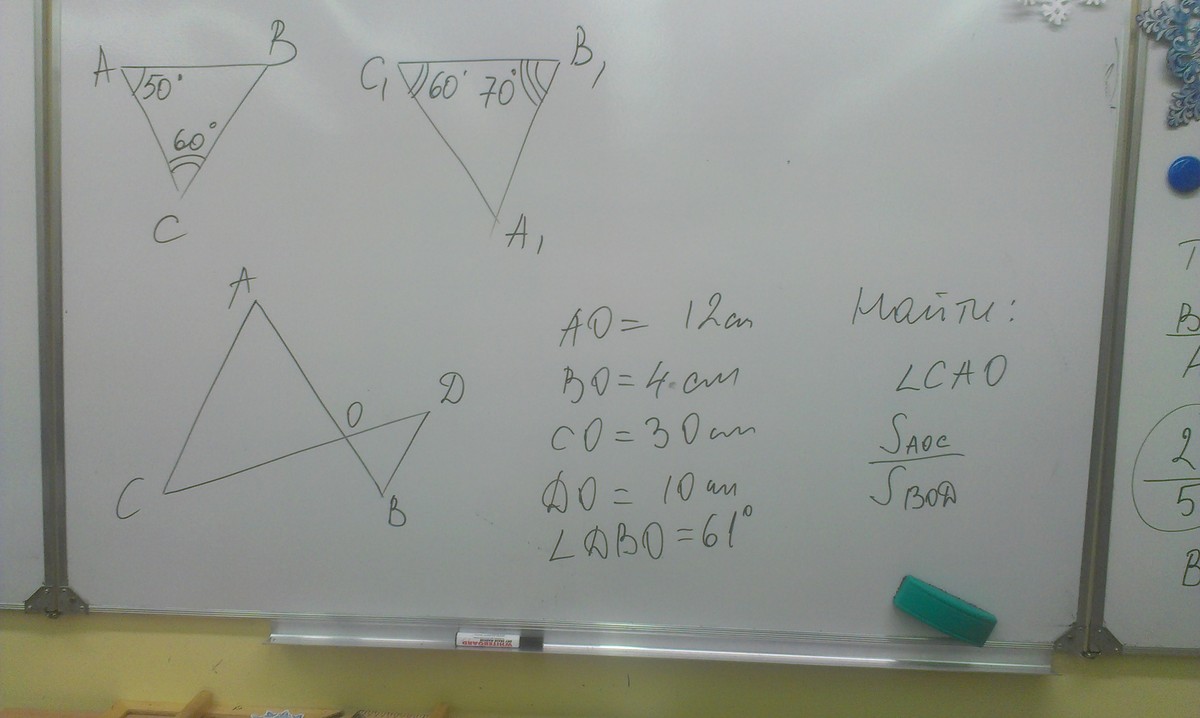 A B
50°
60°
C
C₁ B₁
60° 70°
A₁
A
O D
C B
AO = 12 см
BO = 4 см
CO = 30 см
DO = 10 см
∠DBO = 61°
Найти:
∠CAO
S AOC
S BOD
2
5
B
WHITEBOARD